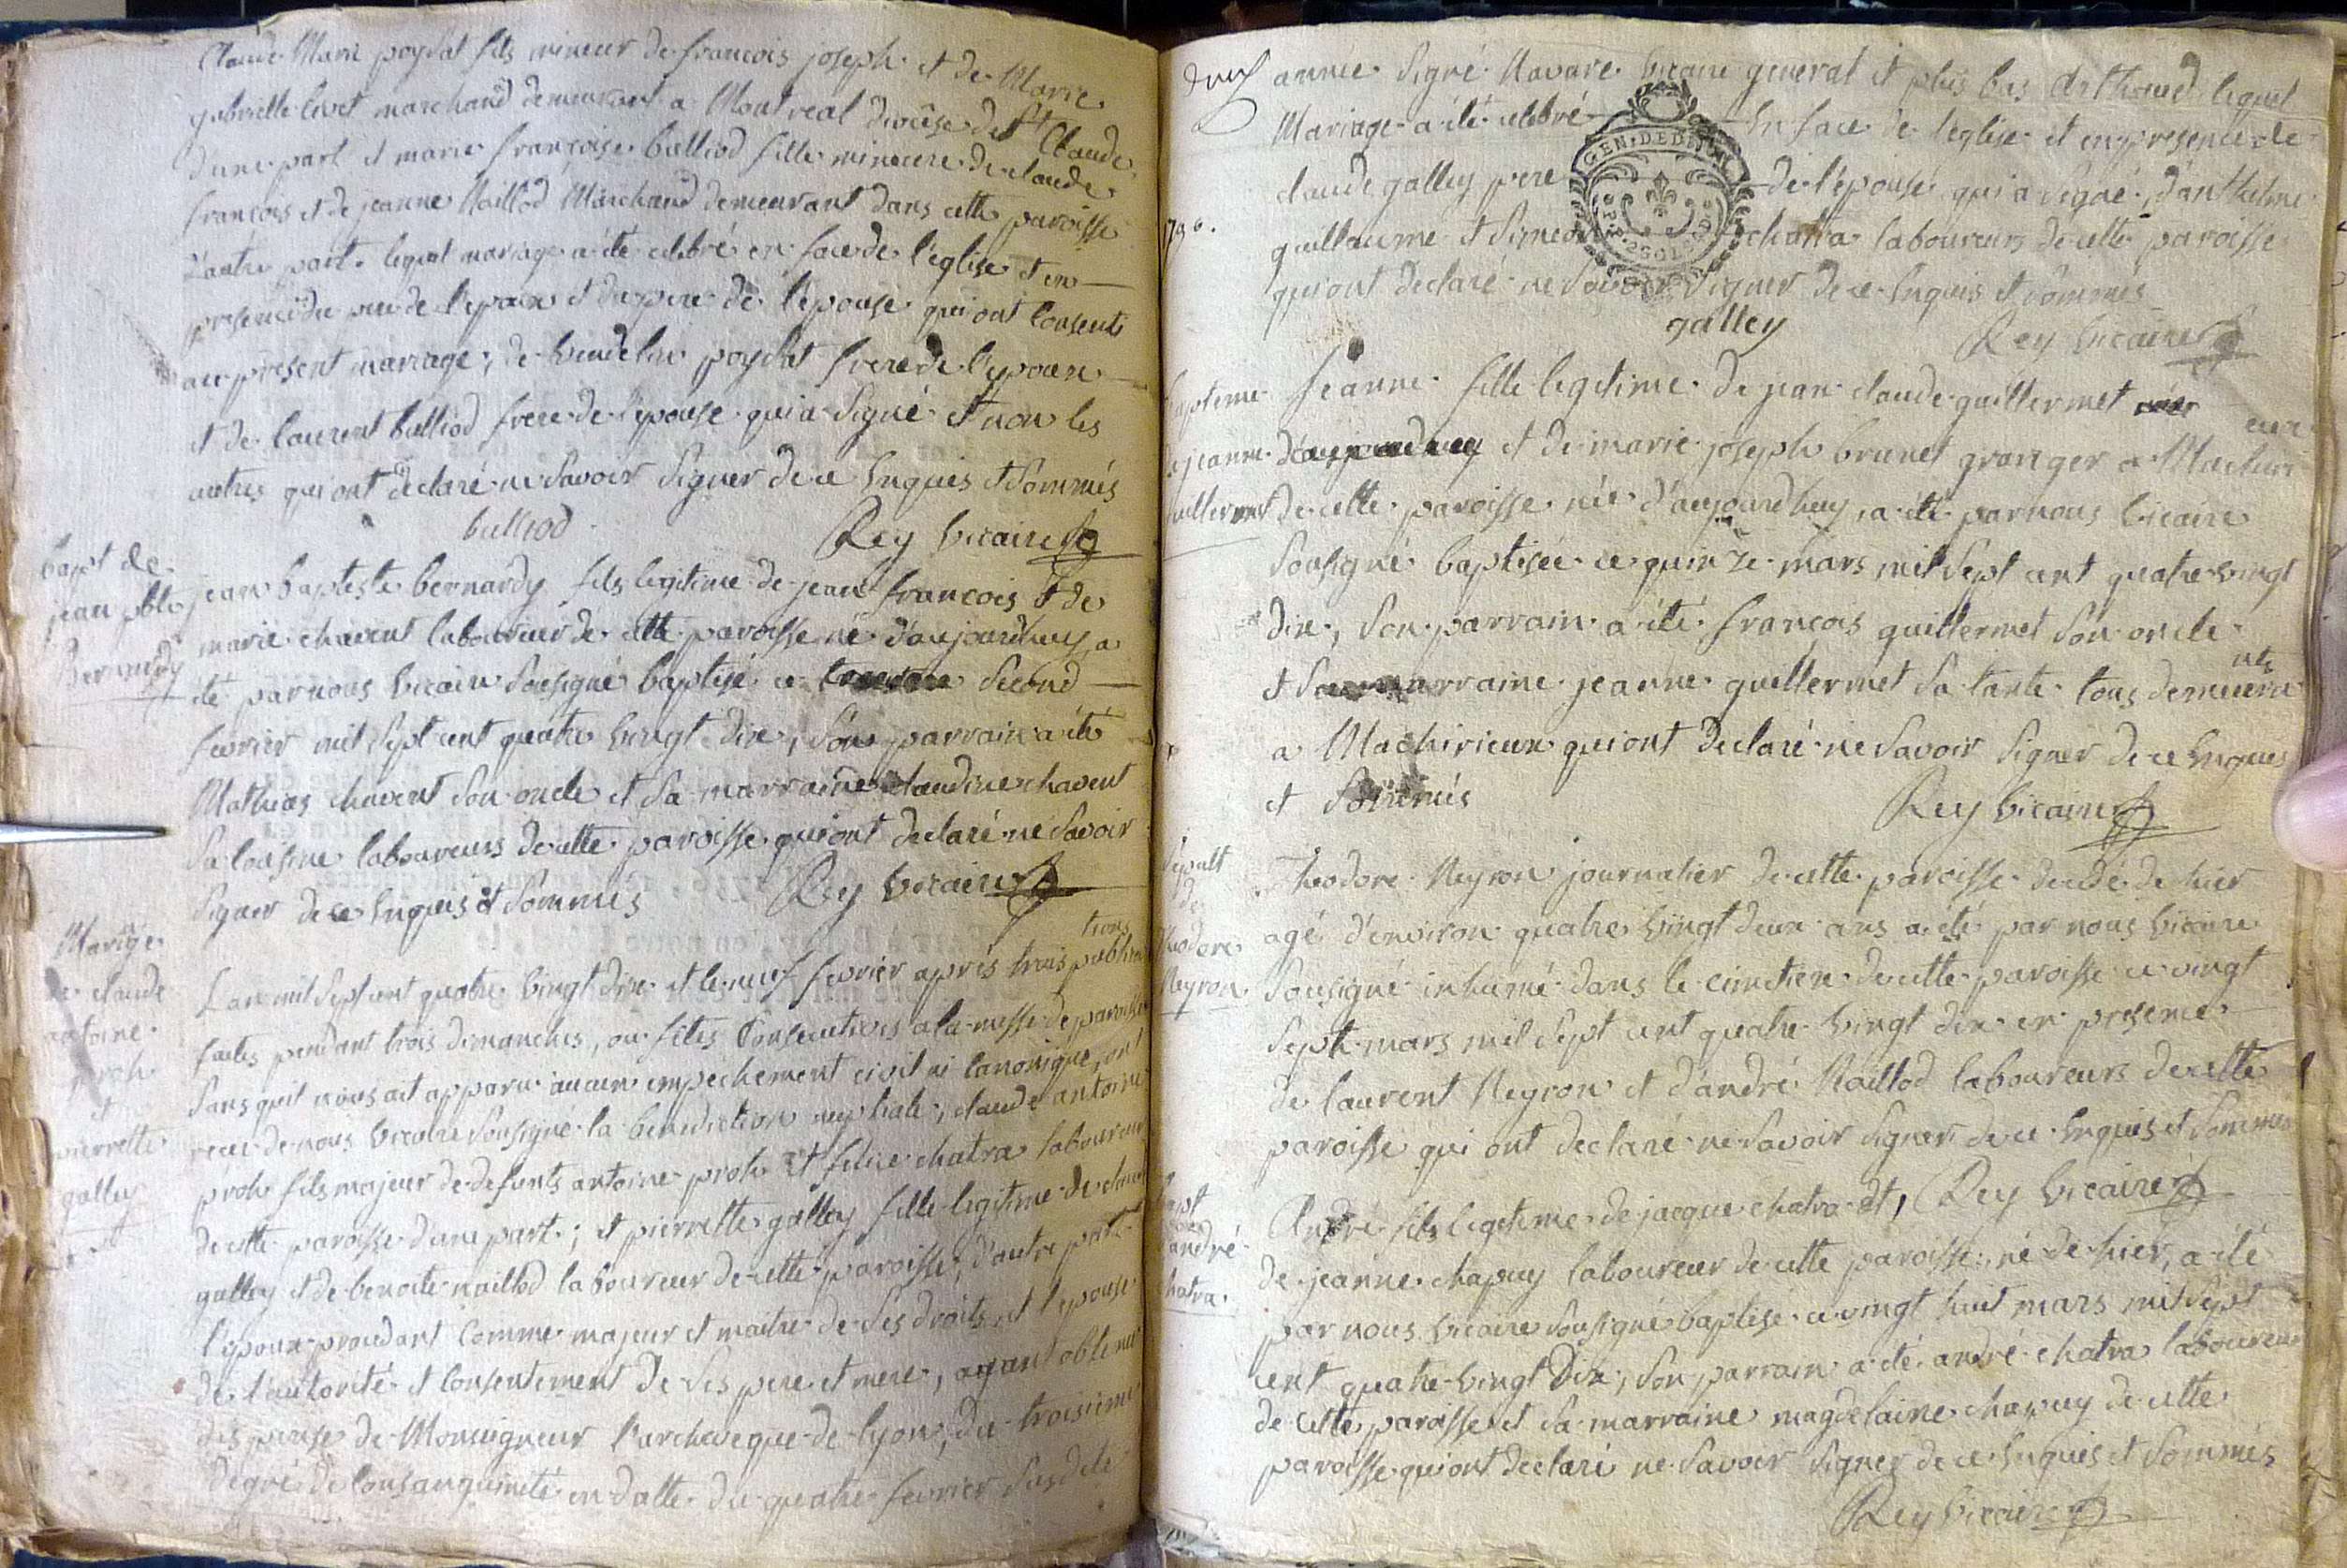 Claude Marie poysat fils mineur de francois joseph et de Marie
gabrielle livet marchand demeurant a Montreal diocèse de St Claude
dune part et marie françoise bulliod fille mineure de claude
françois et de jeanne Naillod Marchand demeurant dans cette paroisse
d'autre part. lequel mariage a été celebré en face de l'eglise et en
presence du pere de l'epoux et du pere de l'epouse qui ont consenti
au present mariage; de poysat frere de l'epoux
et de laurent bulliod frere de l'epouse qui a signé et non les
autres qui ont declaré ne savoir signer de ce Enquis et sommés
bulliod
Rey vicaire
bapt de
jean bte
Bernardy
jean baptiste bernardy fils legitime de jean francois et de
marie chavent laboureur de cette paroisse né d'aujourdhuy a
été par nous vicaire sousigné baptisé ce second
fevrier mil sept cent quatre vingt dix, son parrain a été
Mathieu chavent son oncle et sa marraine claudine chavent
sa cousine laboureurs de cette paroisse qui ont declaré ne savoir
signer de ce Enquis et sommés Rey vicaire
Mariage
de claude
antoine
proh
et
pierrette
galley
L'an mil sept cent quatre vingt dix et le neuf fevrier après trois publica
tions
faites pendant trois dimanches, ou fêtes consecutives a la messe de paroisse
sans quil nous ait apparu aucun empechement civil ni canonique, ont
recu de nous vicaire sousigné la benediction nuptiale, claude antoine
proh fils majeur de defunts antoine proh et felice chatra laboureur
de cette paroisse d'une part; et pierrette galley fille legitime de claude
galley et de benoite naillod laboureur de cette paroisse, d'autre part
l'epoux procedant comme majeur et maitre de ses droits, et l'epouse
de l'autorité et consentement de ses pere et mere, ayant obtenu
dispense de Monseigneur l'archeveque de lyon, du troisieme
degré de consanguinité en datte du quatre fevrier susdite
année signé Navare vicaire general et plus bas Arthaud lequel
Mariage a été celebré en face de l'eglise et en presence de
claude galley pere de l'épouse qui a signé, d'anthelme
guillaume et simeon chatra laboureurs de cette paroisse
qui ont declaré ne savoir signer de ce Enquis et sommés
galley
Rey vicaire
1790.
GEN. DE DIJON
P.P. 2 SOLS
bapteme
de jeanne
guillermet
jeanne fille legitime de jean claude guillermet
et de marie joseph brunet granger a Machuri
eux
de cette paroisse née d'aujourdhuy, a été par nous vicaire
sousigné baptisée ce quinze mars mil sept cent quatre vingt
dix, son parrain a été françois guillermet son oncle
et sa marraine jeanne guillermet sa tante tous demeura
nts
a Machirieux qui ont declaré ne savoir signer de ce Enquis
et sommés Rey vicaire
sepult
de
theodore
Neyron
Theodore Neyron journalier de cette paroisse decedé de hier
agé d'environ quatre vingt deux ans a été par nous vicaire
sousigné inhumé dans le cimetiere de cette paroisse ce vingt
sept mars mil sept cent quatre vingt dix en presence
de laurent Neyron et d'andré Naillod laboureurs de cette
paroisse qui ont declaré ne savoir signer de ce Enquis et sommés
Rey vicaire
bapt
d'andré
chatra.
André fils legitime de jacque chatra et
de jeanne chapuy laboureur de cette paroisse, né de hier, a été
par nous vicaire sousigné baptisé ce vingt huit mars mil sept
cent quatre vingt dix, son parrain a été andré chatra laboureur
de cette paroisse et sa marraine magdelaine chapuy de cette
paroisse qui ont declaré ne savoir signer de ce Enquis et sommés
Rey vicaire